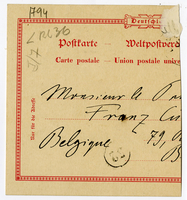 794
Deutschl
Postkarte — Weltpostver
Carte postale — Union postale unive
Nur für die Adresse
Monsieur le
Franz Cu
79,
Belgique
B